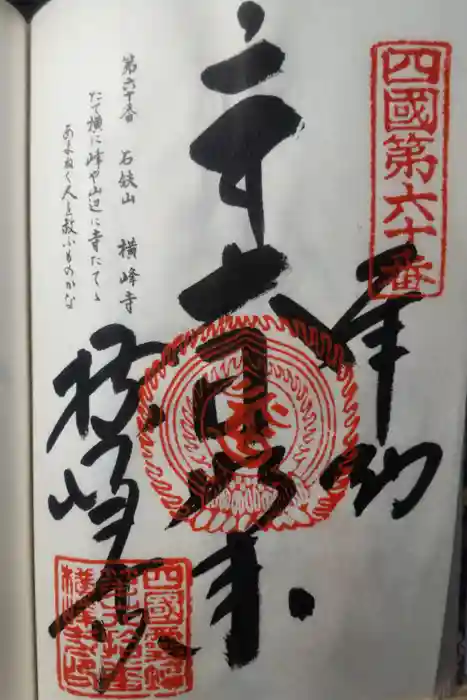 四國第六十番
奉納
大日如来
横峰寺
第六十番 石鈇山 横峰寺
たて横に峰や山辺に寺たてゝ
あまねく人を救ふものかな